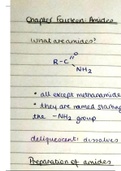 Chapter Fourteen: Amides
What are amides?
O
R-C
NH₂
• all except methanamide
• they are named starting
the -NH₂ group
deliquescent: dissolves
Preparation of amides